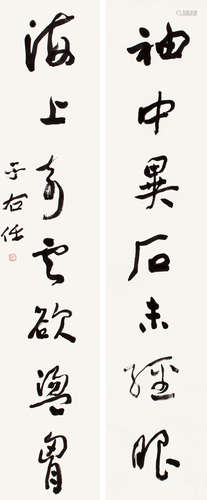 袖中異石未經眼
海上奇雲欲盪胷
于右任